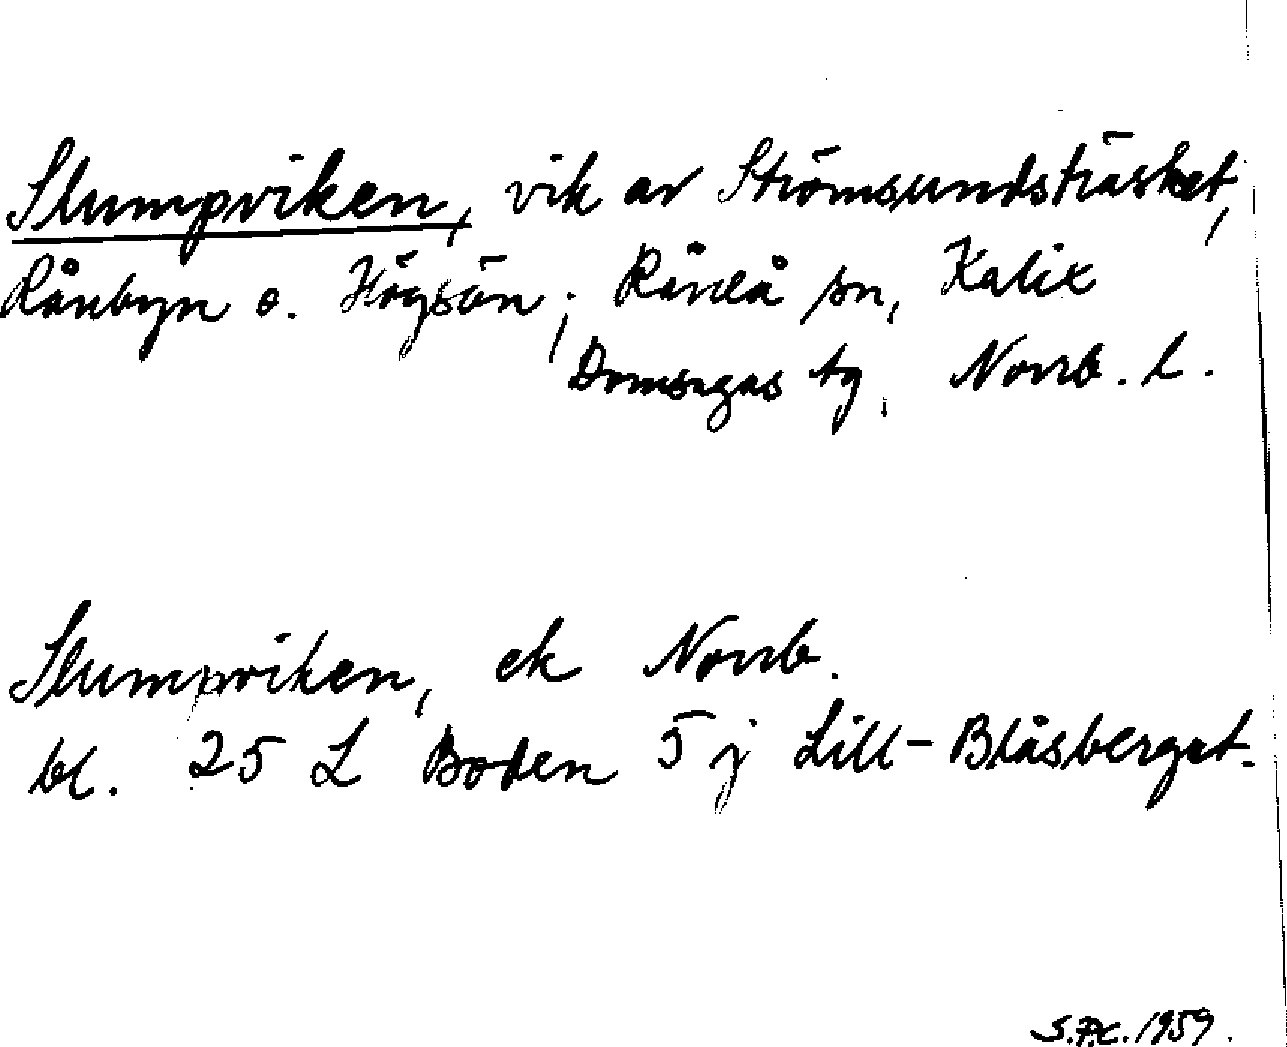 Slumpviken, vik av Strömsundsträsket,
Rånbyn o. Högsön; Råneå sn, Kalix
Domsagas tg, Norrb. l.
Slumpviken, ek Norrb.
bl. 25 L Boden 5 j Lill-Blåsberget.
S.P.C. 1959.